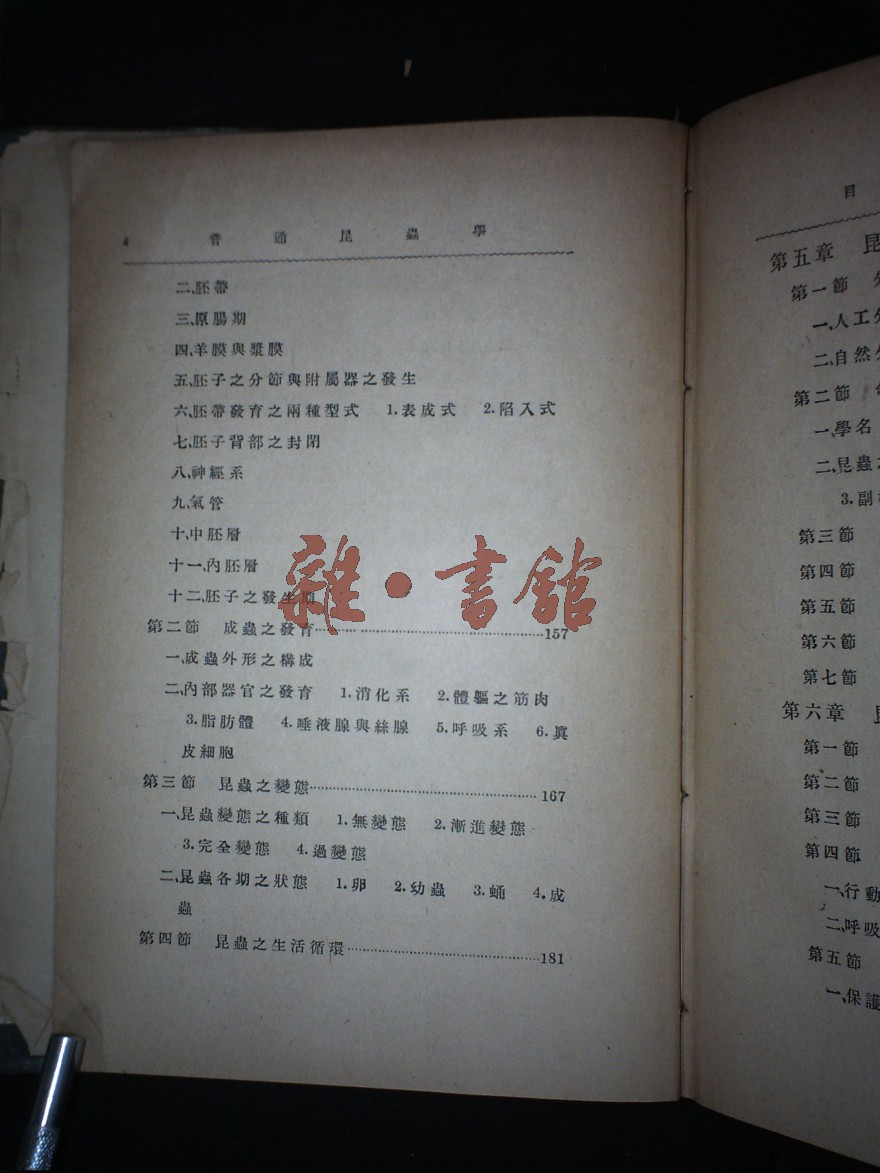 4 普通昆蟲學
二、胚帶
三、原腸期
四、羊膜與漿膜
五、胚子之分節與附屬器之發生
六、胚帶發育之兩種型式 1.表成式 2.陷入式
七、胚子背部之封閉
八、神經系
九、氣管
十、中胚層
十一、內胚層
十二、胚子之發生期
第二節 成蟲之發育……………………………157
一、成蟲外形之構成
二、內部器官之發育 1.消化系 2.體軀之筋肉
3.脂肪體 4.唾液腺與絲腺 5.呼吸系 6.眞
皮細胞
第三節 昆蟲之變態……………………………167
一、昆蟲變態之種類 1.無變態 2.漸進變態
3.完全變態 4.過變態
二、昆蟲各期之狀態 1.卵 2.幼蟲 3.蛹 4.成
蟲
第四節 昆蟲之生活循環……………………………181
雜·書館
目
第五章 昆
第一節
一、人工
二、自然
第二節
一、學名
二、昆蟲
3.副
第三節
第四節
第五節
第六節
第七節
第六章
第一節
第二節
第三節
第四節
一、行動
二、呼吸
第五節
一、保護